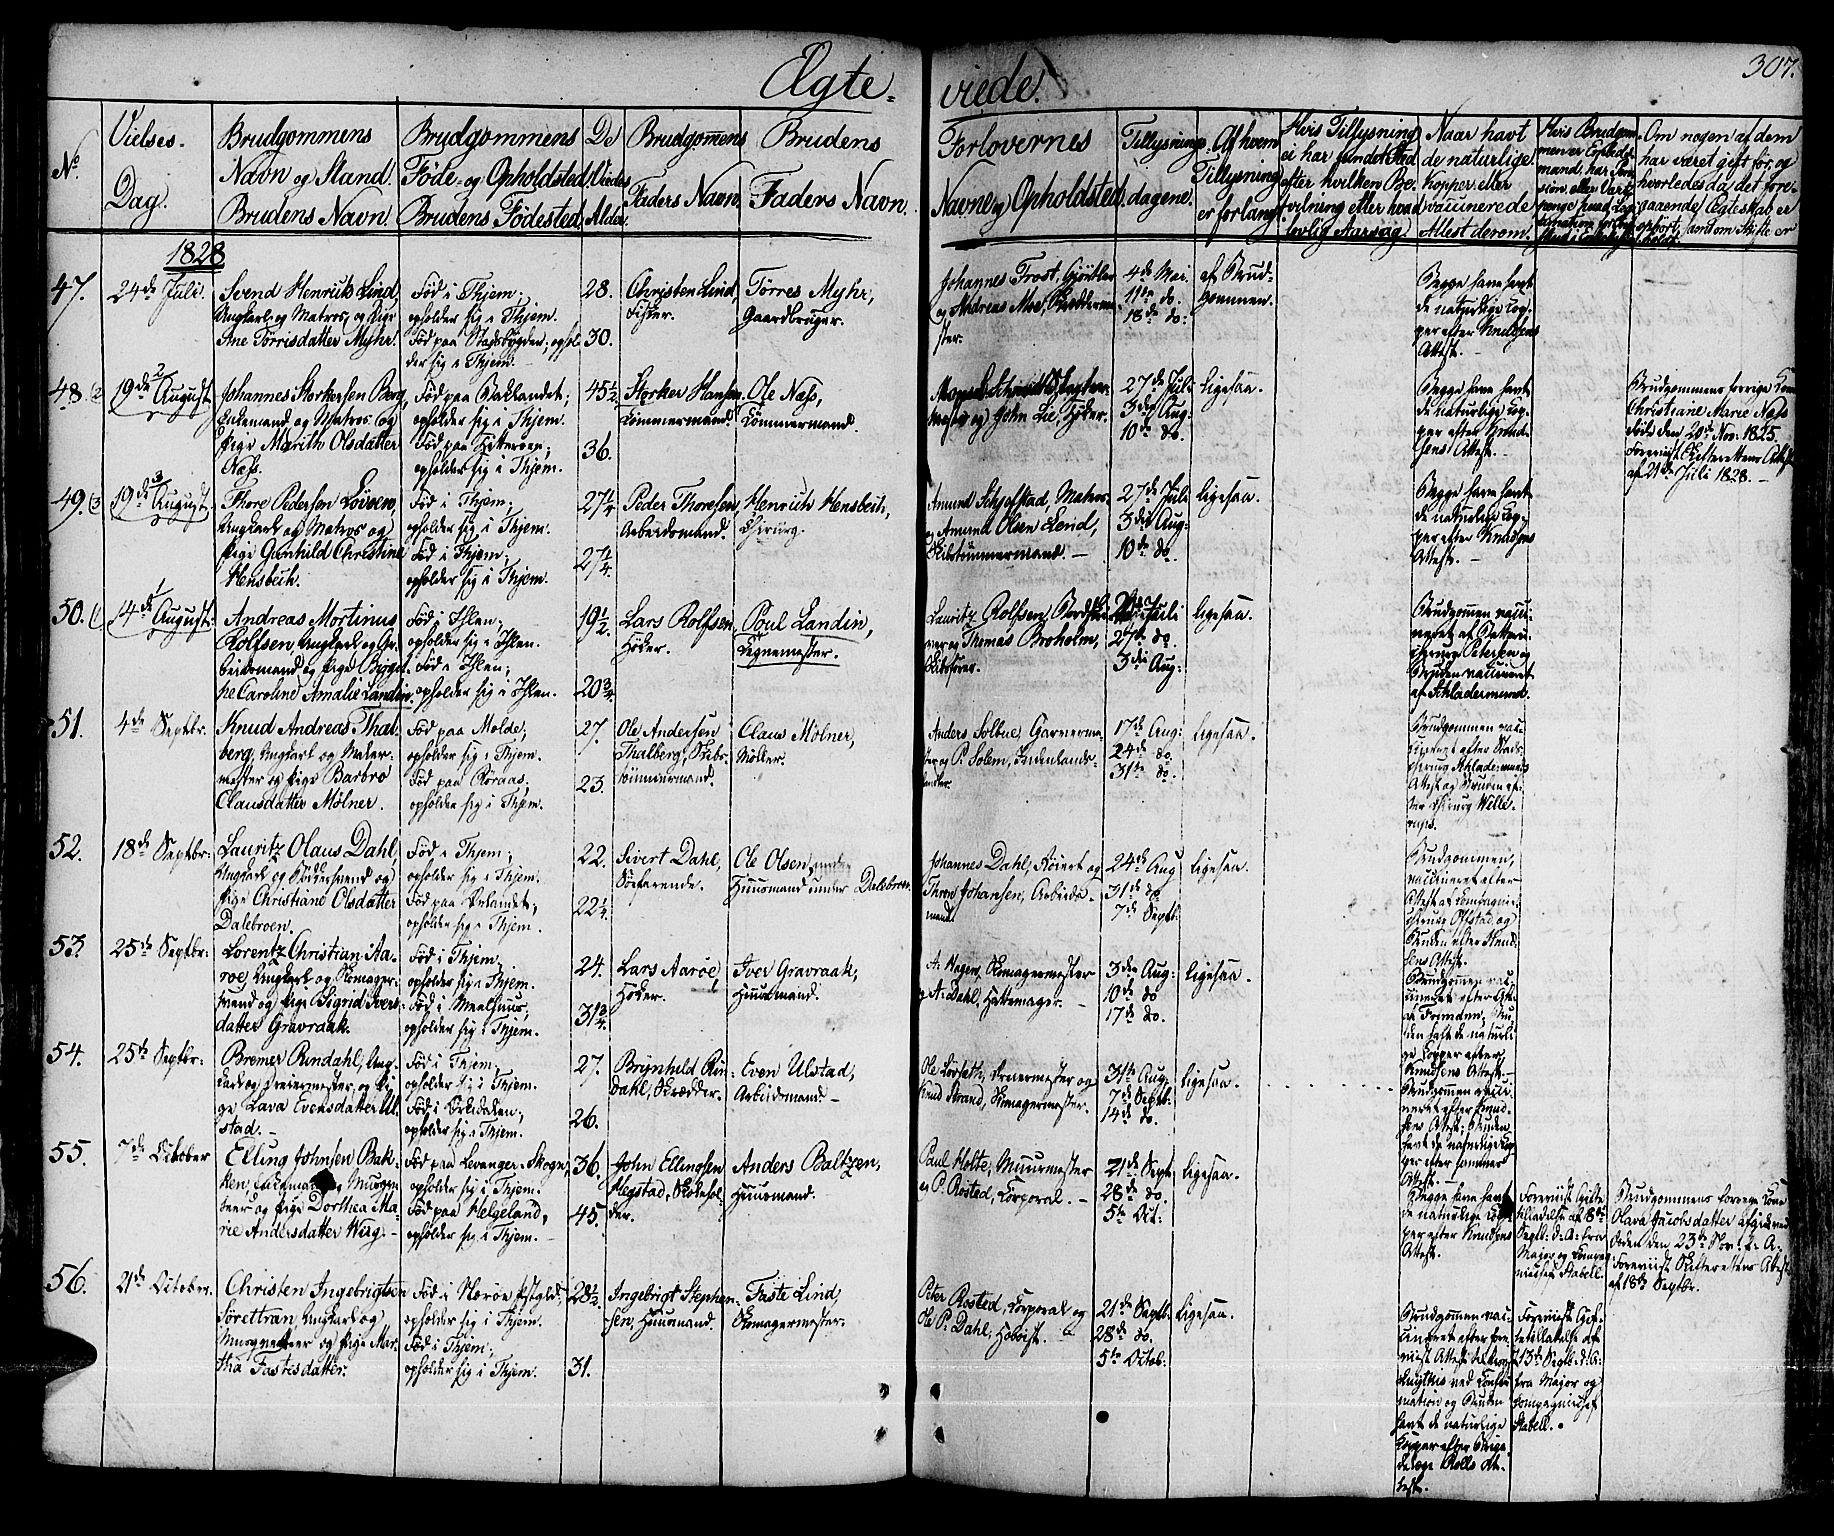 Ægte-
viede.
307.
No.
Vielses-
Dag.
Brudgommens
Navn og Stand.
Brudens Navn.
Brudgommens
Føde- og Opholdsted,
Brudens Fødested.
De
Viedes
Alder.
Brudgomens
Faders Navn.
Brudens
Faders Navn.
Forlovernes
Navne og Opholdsted.
Tillysnings-
dagene.
Af hvem
Tillysning
er forlangt.
Hvis Tillysning
ei har fundet Sted
efter hvilken Be-
vilning eller hvad
lovlig Aarsag.
Naar havt
de naturlige
Kopper eller
vaccinerede
Attest derom.
Hvis Brudgom-
men er
mand, har
Om nogen af dem
har været gift før, og
hvorledes da det fore-
gaaende Ægteskab er
ophørt, samt om Skifte er
holdt.
1828
47.
24de Juli.
Svend Henrik Lind,
Ungkarl og Matros og Pige
Ane Tørrisdatter Myhr.
Fød i Thjem;
opholder sig i Thjem.
Fød paa Stadsbygden; ophol-
der sig i Thjem.
28.
30.
Christen Lind,
Fisker.
Tørres Myhr,
Gaardbruger.
Johannes Frost, Gjørtler
og Andreas Moe,
ster.
4de Mai.
11te do.
18de do:
af Brud-
gommen.
Begge have havt
de naturlige Kop-
per efter Knudsens
Attest.
48. (2
19de August
Johannes Storkersen Berg,
Enkemand og Matros og
Pige Marith Olsdatter
Næss.
Fød paa Baklandet;
opholder sig i Thjem.
Fød paa Hitterøen;
opholder sig i Thjem.
45 1/2.
36.
Storker Hansen,
Tømmermand.
Ole Næss,
Tømmermand.
og John Lie, Høker.
27de Juli
3die Aug:
10de do.
ligesaa.
Begge have havt
de naturlige Kop-
per efter Knud-
sens Attest.
Brudgommens forrige Kone
Christiane Marie Næss
døde den 20de Nov: 1825.
Foreviist Skifterettens Attest
af 21de Juli 1828.
49. (3
19de August
Thore Pedersen Løveng,
Ungkarl og Matros og
Pige Gunhild Christine
Hensbech.
Fød i Thjem;
opholder sig i Thjem.
Fød i Thjem;
opholder sig i Thjem.
27 1/4
27 1/4.
Peder Thoresen,
Arbeidsmand.
Henrich Hensbech,
Chirurg.
Amund Schjefstad, Matros
og Amund Olsen Lend,
Skibstømmermand.
27de Juli
3die Aug:
10de do
ligesaa.
Begge have havt
de naturlige Kop-
per efter Knudsens
Attest.
50. (1
14de August.
Andreas Mortinus
Rolfsen, Ungkarl og Ar-
beidsmand og Pige Birgit-
he Caroline Amalie Landin.
Fød i Ihlen;
opholder sig i Ihlen.
Fød i Ihlen;
opholder sig i Ihlen.
19 1/2.
20 3/4.
Lars Rolfsen,
Høker.
Poul Landin,
Tegnemester.
Lauritz Rolfsen,
og Thomas Broholm,
Juli
27de do
3die Aug:
ligesaa.
Brudgommen vacci-
neret af
Petersen og
Bruden vaccineret
af Schladermund.
51.
4de Septbr.
Knud Andreas Thal-
berg, Ungkarl og Maler-
mester og Pige Barbro
Clausdatter Mølner.
Fød paa Molde;
opholder sig i Thjem.
Fød paa Røraas;
opholder sig i Thjem.
27.
23.
Ole Andersen
Thalberg, Skibs-
tømmermand.
Claus Mølner,
Møller.
Anders Solbue, Garverme-
ster og P. Solem,
17de Aug:
24de do
31te do.
ligesaa.
Brudgommen vac-
cineret efter Stads-
chirurg Schladermunds
Attest og Bruden ef-
ter Chirurg Wille-
rups.
52.
18de Septbr:
Lauritz Olaus Dahl,
Ungkarl og Bødkersvend og
Pige Christiane Olsdatter
Dalebroen.
Fød i Thjem;
opholder sig i Thjem.
Fød paa Ørlandet;
opholder sig i Thjem.
22.
22 1/4.
Sivert Dahl,
Søefarende.
Ole Olsen,
Huusmand under Dalebroen.
Johannes Dahl, Røiert og
Thron Johansen, Arbeids-
mand.
24de Aug
31te do
7de Septb:
ligesaa.
Brudgommen,
vaccineret efter
Attest af Compagnie-
chirurg Offstad og
Bruden efter Knud-
sens Attest.
53.
25de Septbr:
Lorentz Christian Aa-
røe, Ungkarl og Skomager-
svend og Pige Sigrid Ivers-
datter Gravraak.
Fød i Thjem;
opholder sig i Thjem.
Fød i Meelhuus;
opholder sig i Thjem.
24.
31 3/4.
Lars Aarøe,
Høker.
Iver Gravraak,
Huusmand.
A. Hagen, Skomagermester
og A. Dahl, Hattemager.
3die Aug:
10de do
17de do.
ligesaa.
Brudgomen vac-
cineret efter Att.
af Bru-
den havt de naturli-
ge Kopper efter
Knudsens Attest.
54.
25de Septbr:
Bremer Rindahl, Ung-
karl og Dreiermester og Pi-
ge Lava Evensdatter Ul-
stad.
Fød i Thjem;
opholder sig i Thjem.
Fød i Orkedalen;
opholder sig i Thjem.
27.
26.
Brynhild Rin-
dahl, Skrædder.
Even Ulstad,
Arbeidsmand
Ole Løvseth, Dreiermester og
Knud Strand, Skomagermester.
31te Aug,
7de Septb:
14de do.
ligesaa.
Brudgommen vacci-
neret efter Knud-
sens Attest; Bruden
havt de naturlige Kop-
per efter samme
Attest.
55.
7de October
Elling Johnsen Bak-
ken,
og Pige Dorthea Ma-
rie Andersdatter Wug.
Fød paa Levanger-Skogn,
opholder sig i Thjem.
Fød paa Helgeland,
opholder sig i Thjem.
36.
45.
John Ellingsen
Hegstad,
Anders Baltzen,
Huusmand.
Paul Holte, Muurmester
og P. Rosted, Corporal.
21de Sept
28de do.
5te Oct:
ligesaa.
Begge have havt
de naturlige Kop-
per efter Knudsens
Attest.
Foreviist Gifte-
tilladelse af 8de
Septb: d: A: fra
Major og Compag-
niechef Stabell.
Brudgommens forrige Kone
Olava Jacobsdatter afgik ved
Døden den 23de Nov: f: A:
Foreviist Skifterettens Attest
af 18de Septbr.
56.
21de October.
Christen Ingebrigtsen
Sørettran, Ungkarl og
og Pige Mar-
tha Fastesdatter.
Fød i Værøe Præstegield;
opholder sig i Thjem.
Fød i Thjem;
opholder sig i Thjem.
28 1/2.
31.
Ingebrigt Stephen-
sen, Huusmand.
Faste Lind,
Skomagermester.
Peter Rosted, Corporal og
Ole P. Dahl, Hoboist.
21de Septb:
28de do.
5te Octob:
ligesaa.
Brudgommen vac-
cineret efter fore-
viist Attest
ved Confir-
mation og Bruden
havt de naturlige
Kopper efter
Rolls At-
test.
Foreviist Gif-
tetilladelse af
13de Septb: d: A:
fra Major og
Compagniechef
Stabell.